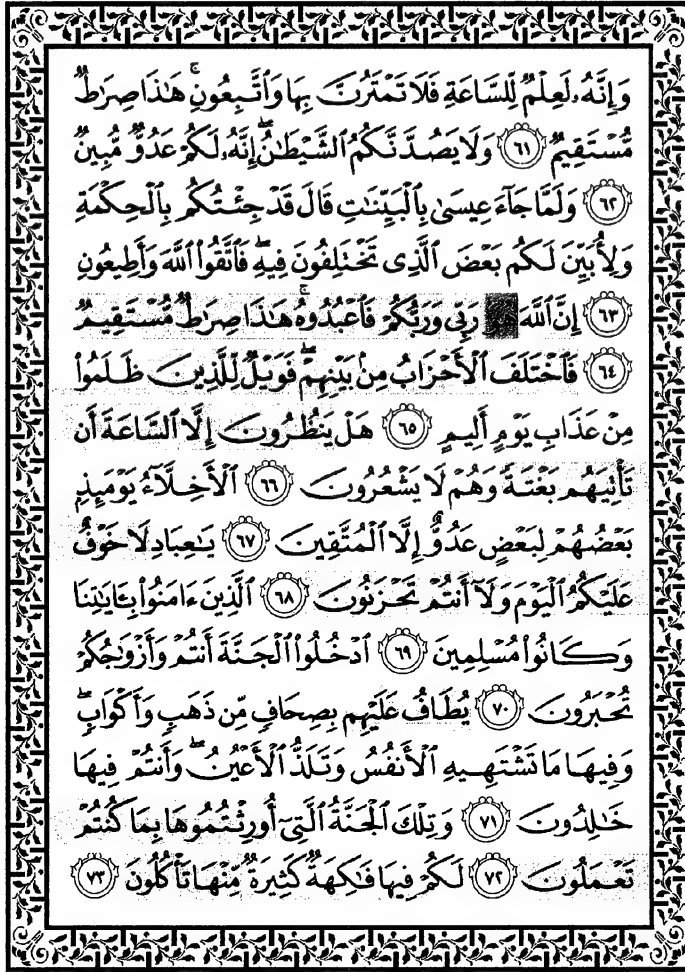 وَإِنَّهُۥ لَعِلْمٌ لِّلسَّاعَةِ فَلَا تَمْتَرُنَّ بِهَا وَٱتَّبِعُونِ ۚ هَٰذَا صِرَٰطٌ
مُّسْتَقِيمٌ ﴿٦١﴾ وَلَا يَصُدَّنَّكُمُ ٱلشَّيْطَٰنُ ۖ إِنَّهُۥ لَكُمْ عَدُوٌّ مُّبِينٌ
﴿٦٢﴾ وَلَمَّا جَآءَ عِيسَىٰ بِٱلْبَيِّنَٰتِ قَالَ قَدْ جِئْتُكُم بِٱلْحِكْمَةِ
وَلِأُبَيِّنَ لَكُم بَعْضَ ٱلَّذِى تَخْتَلِفُونَ فِيهِ ۖ فَٱتَّقُوا۟ ٱللَّهَ وَأَطِيعُونِ
﴿٦٣﴾ إِنَّ ٱللَّهَ هُوَ رَبِّى وَرَبُّكُمْ فَٱعْبُدُوهُ ۚ هَٰذَا صِرَٰطٌ مُّسْتَقِيمٌ
﴿٦٤﴾ فَٱخْتَلَفَ ٱلْأَحْزَابُ مِنۢ بَيْنِهِمْ ۖ فَوَيْلٌ لِّلَّذِينَ ظَلَمُوا۟
مِنْ عَذَابِ يَوْمٍ أَلِيمٍ ﴿٦٥﴾ هَلْ يَنظُرُونَ إِلَّا ٱلسَّاعَةَ أَن
تَأْتِيَهُم بَغْتَةً وَهُمْ لَا يَشْعُرُونَ ﴿٦٦﴾ ٱلْأَخِلَّآءُ يَوْمَئِذٍۭ
بَعْضُهُمْ لِبَعْضٍ عَدُوٌّ إِلَّا ٱلْمُتَّقِينَ ﴿٦٧﴾ يَٰعِبَادِ لَا خَوْفٌ
عَلَيْكُمُ ٱلْيَوْمَ وَلَآ أَنتُمْ تَحْزَنُونَ ﴿٦٨﴾ ٱلَّذِينَ ءَامَنُوا۟ بِـَٔايَٰتِنَا
وَكَانُوا۟ مُسْلِمِينَ ﴿٦٩﴾ ٱدْخُلُوا۟ ٱلْجَنَّةَ أَنتُمْ وَأَزْوَٰجُكُمْ
تُحْبَرُونَ ﴿٧٠﴾ يُطَافُ عَلَيْهِم بِصِحَافٍ مِّن ذَهَبٍ وَأَكْوَابٍ ۖ
وَفِيهَا مَا تَشْتَهِيهِ ٱلْأَنفُسُ وَتَلَذُّ ٱلْأَعْيُنُ ۖ وَأَنتُمْ فِيهَا
خَٰلِدُونَ ﴿٧١﴾ وَتِلْكَ ٱلْجَنَّةُ ٱلَّتِىٓ أُورِثْتُمُوهَا بِمَا كُنتُمْ
تَعْمَلُونَ ﴿٧٢﴾ لَكُمْ فِيهَا فَٰكِهَةٌ كَثِيرَةٌ مِّنْهَا تَأْكُلُونَ ﴿٧٣﴾